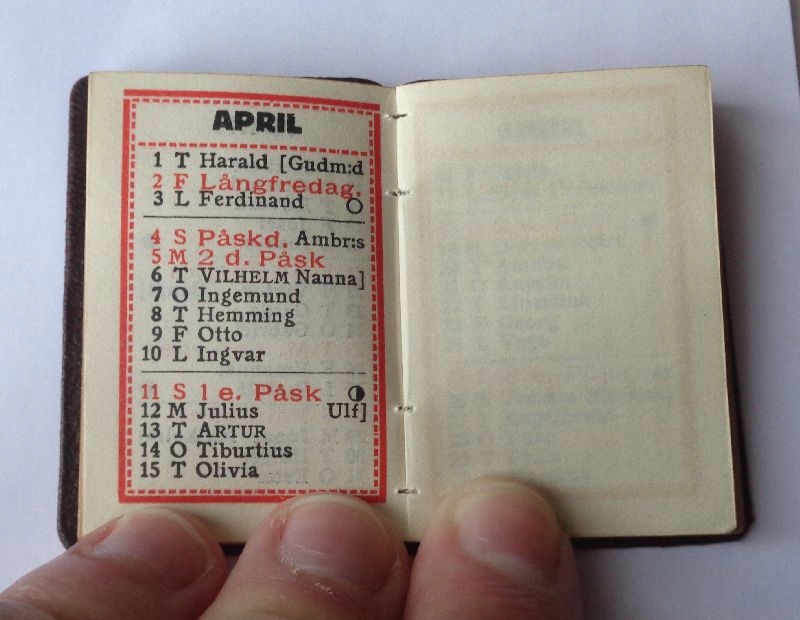 APRIL
1 T Harald [Gudm:d
2 F Långfredag.
3 L Ferdinand
4 S Påskd. Ambr:s
5 M 2 d. Påsk
6 T VILHELM Nanna]
7 O Ingemund
8 T Hemming
9 F Otto
10 L Ingvar
11 S 1 e. Påsk
12 M Julius Ulf]
13 T ARTUR
14 O Tiburtius
15 T Olivia